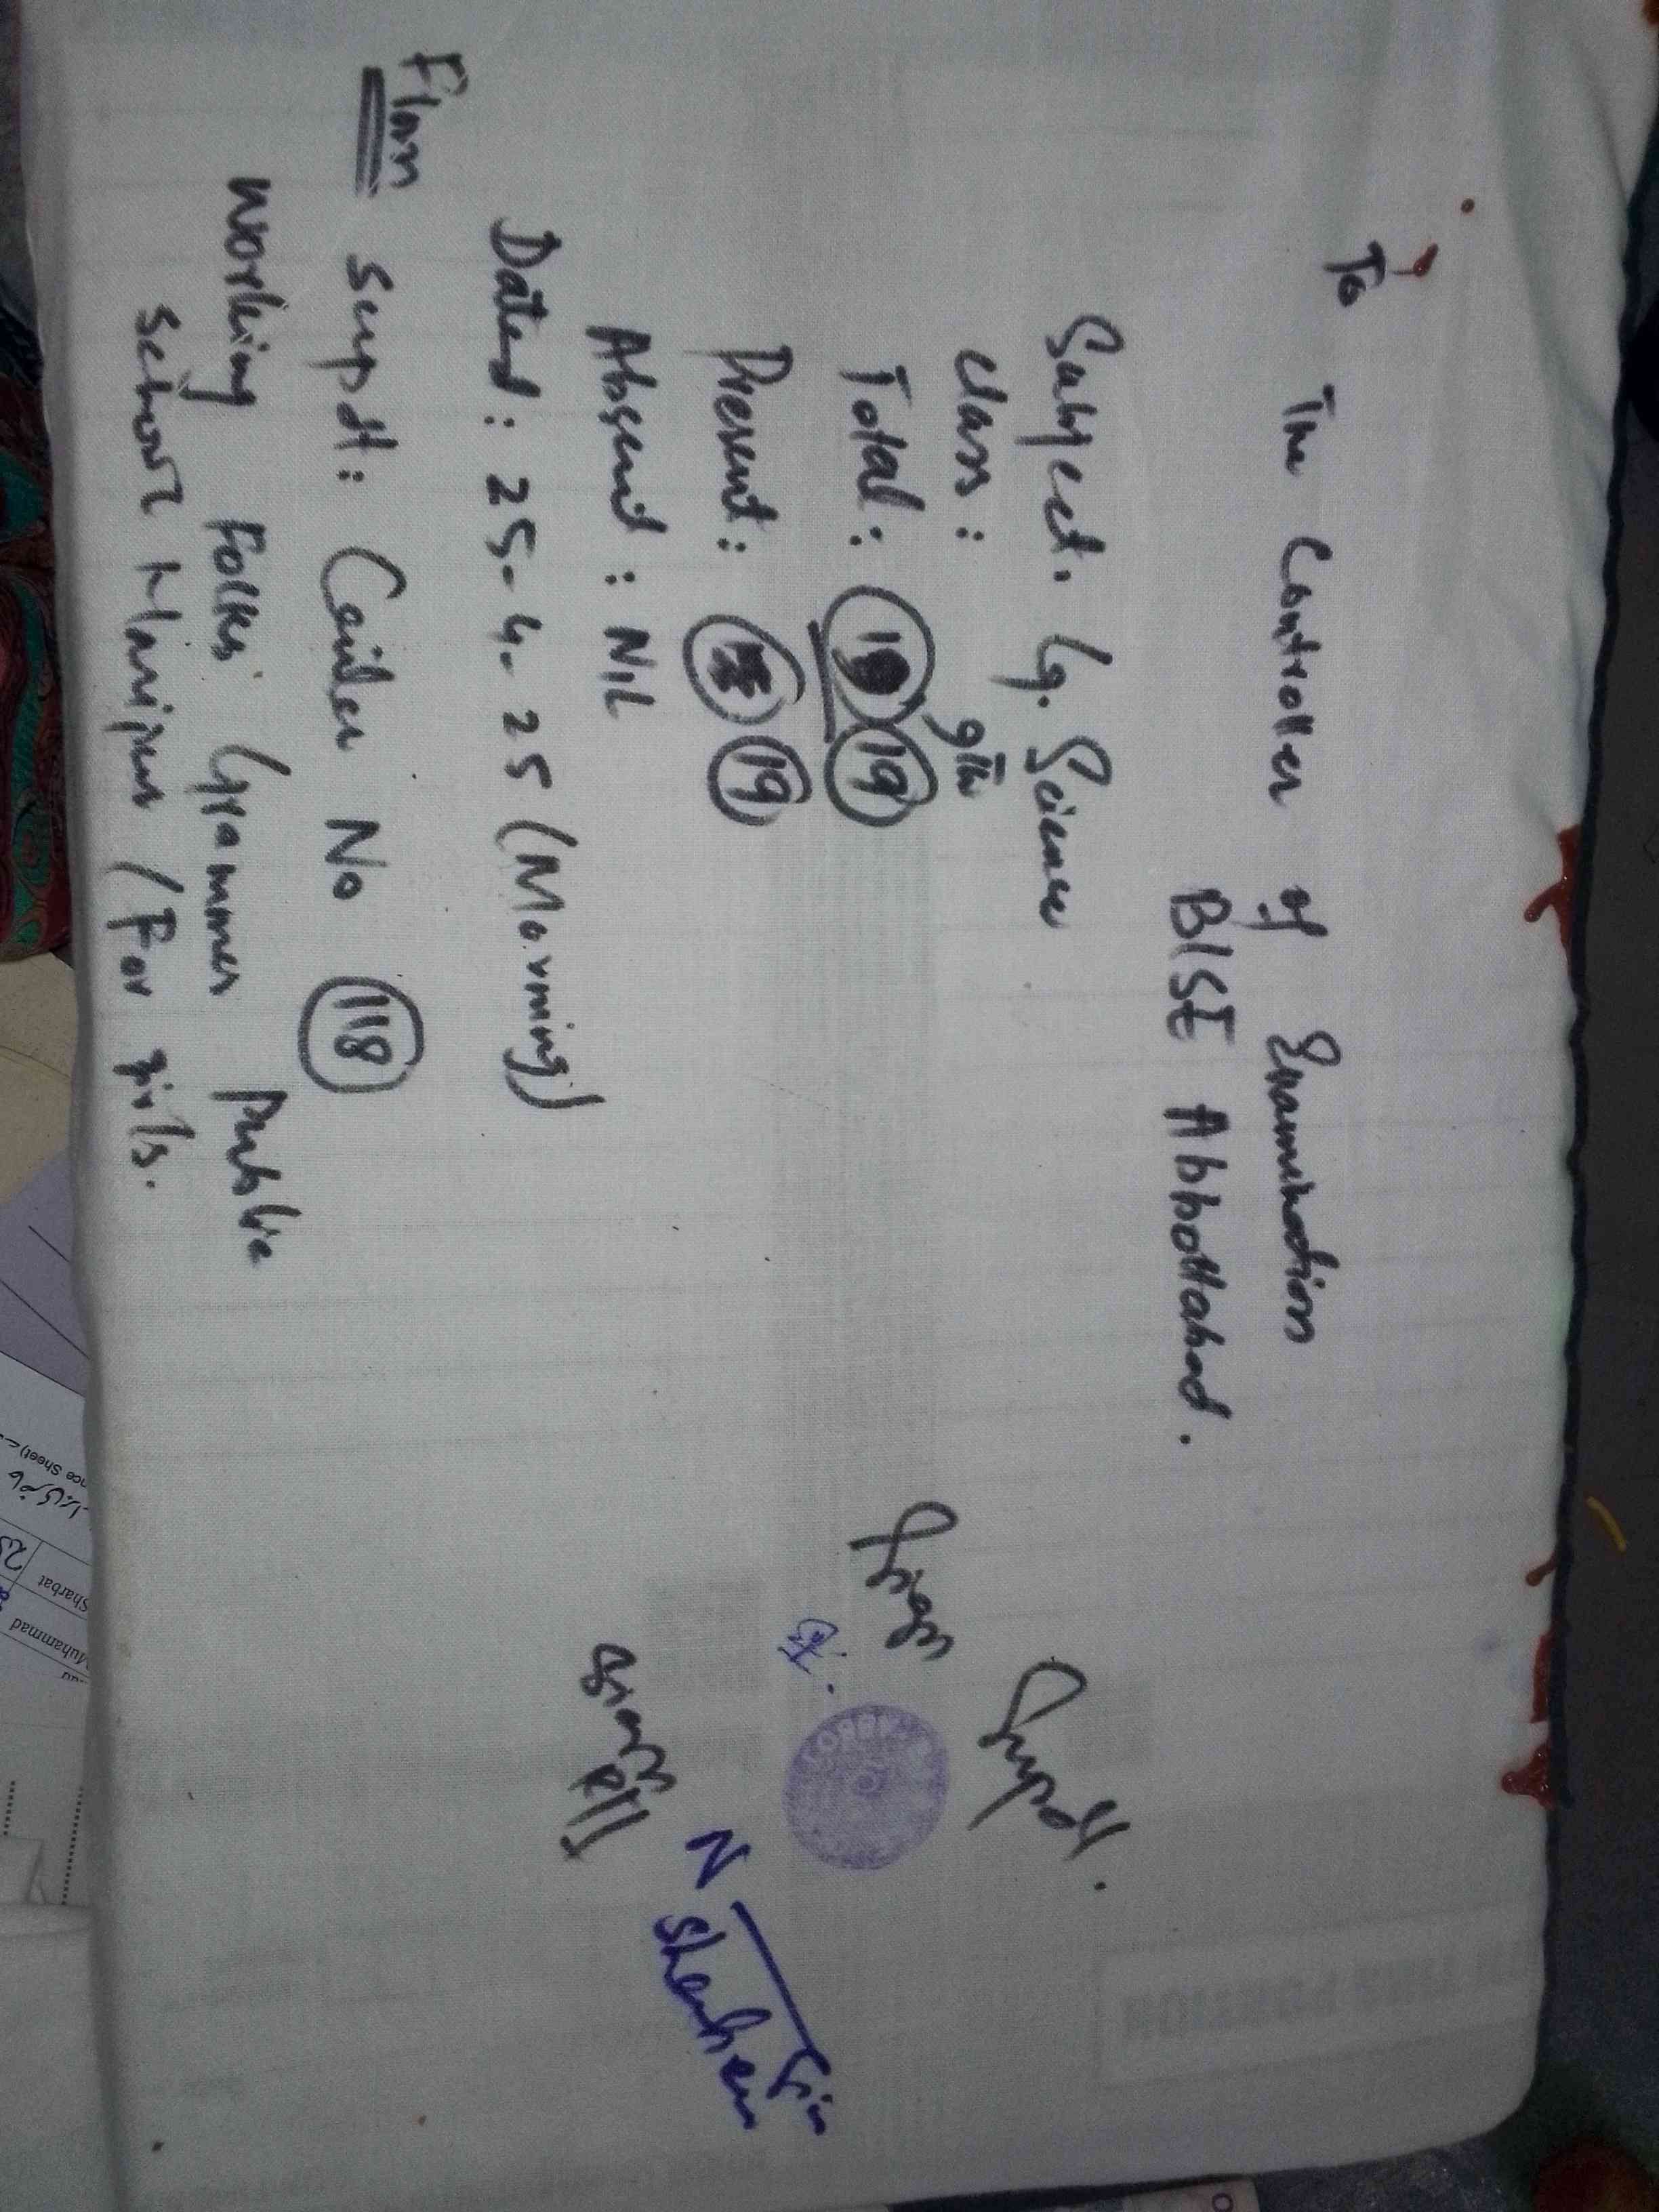 To
The Controller of Examination
BISE Abbottabad.
Subject. G. Science
Class: 9th
Total: 19 19
Present: 19
Absent: NIL
Dated: 25-4-25 (Morning)
From
Supdt: Center No 118
Working Folks Grammer Public
School Haripur (For girls.
Supdt.
N
Shaheen
Sharbat
Muhammad